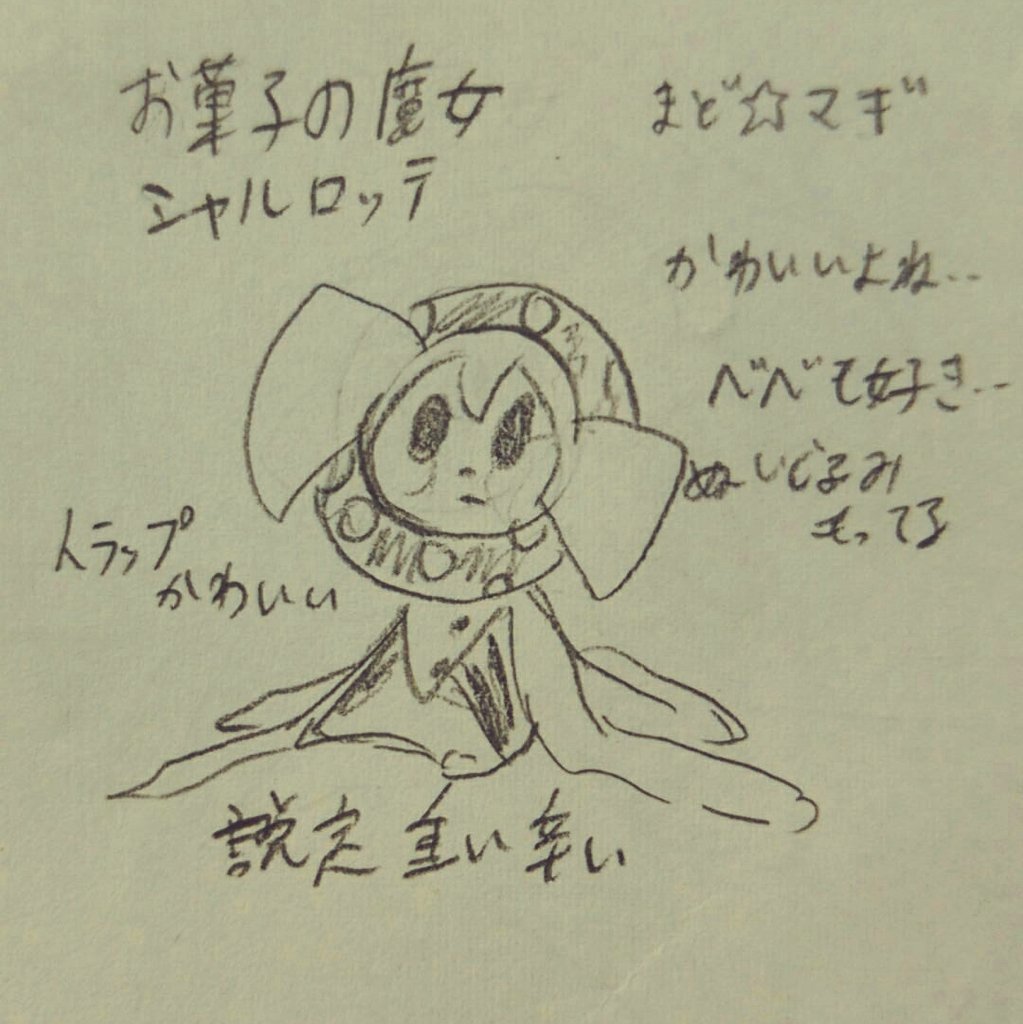 お菓子の魔女
シャルロッテ
まど☆マギ
かわいいよね..
べべも好き..
ぬいぐるみ
もってる
トラップ
かわいい
設定重い辛い